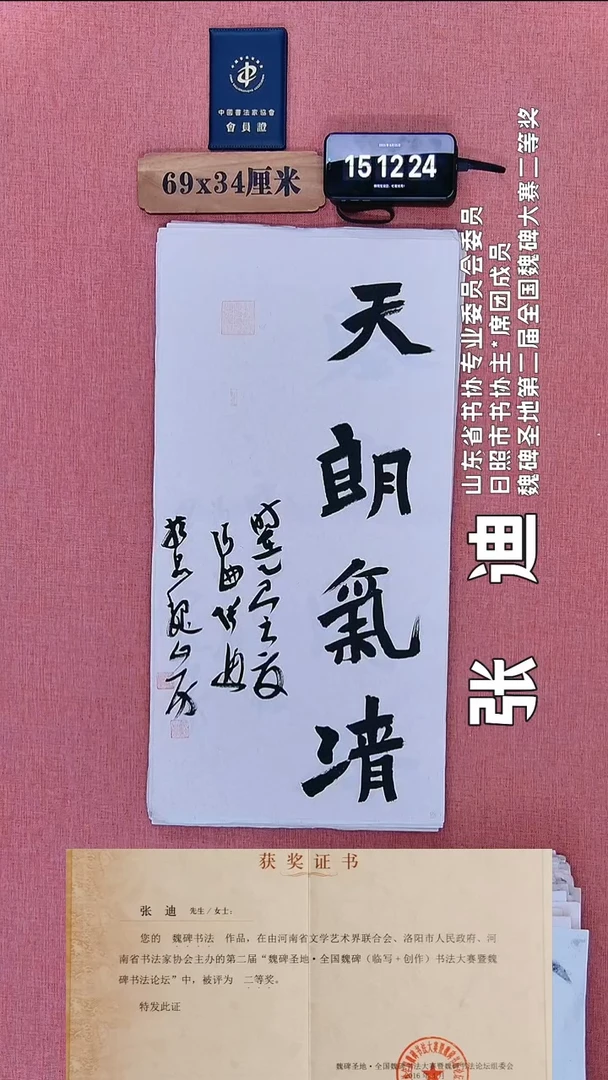 中國書法家協會
會員證
69x34厘米
15 12 24
天朗氣清
山东省书协专业委员会委员
日照市书协主*席团成员
魏碑圣地第二届全国魏碑大赛二等奖
张 迪
获奖证书
张 迪 先生/女士:
您的 魏碑书法 作品,在由河南省文学艺术界联合会、洛阳市人民政府、河
南省书法家协会主办的第二届“魏碑圣地·全国魏碑(临写+创作)书法大赛暨魏
碑书法论坛”中,被评为 二等奖。
特发此证
魏碑圣地·全国魏碑书法大赛暨魏碑书法论坛组委会